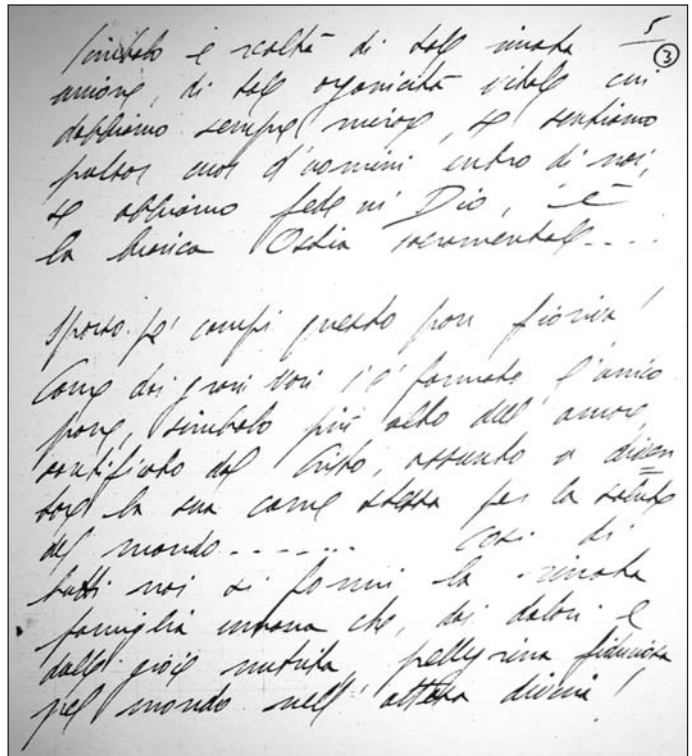 5
3
Simbolo e realtà di tale innata
unione, di tale organicità vitale cui
dobbiamo sempre mirare, se sentiamo
pulsar cuor d'uomini entro di noi,
se abbiamo fede in Dio, è
la bianca Ostia sacramentale....
Sparso pe' campi questo pan fioriva!
Come dai grani vari s'è formato l'unico
pane, simbolo più alto dell'amore,
santificato dal Cristo, assunto a diven
tare la sua carne stessa per la salute
del mondo....... Così di
tutti noi si formi la rinata
famiglia umana che, dai dolori e
dalle gioie nutrita, pellegrina fiduciosa
pel mondo nell'attesa divina!